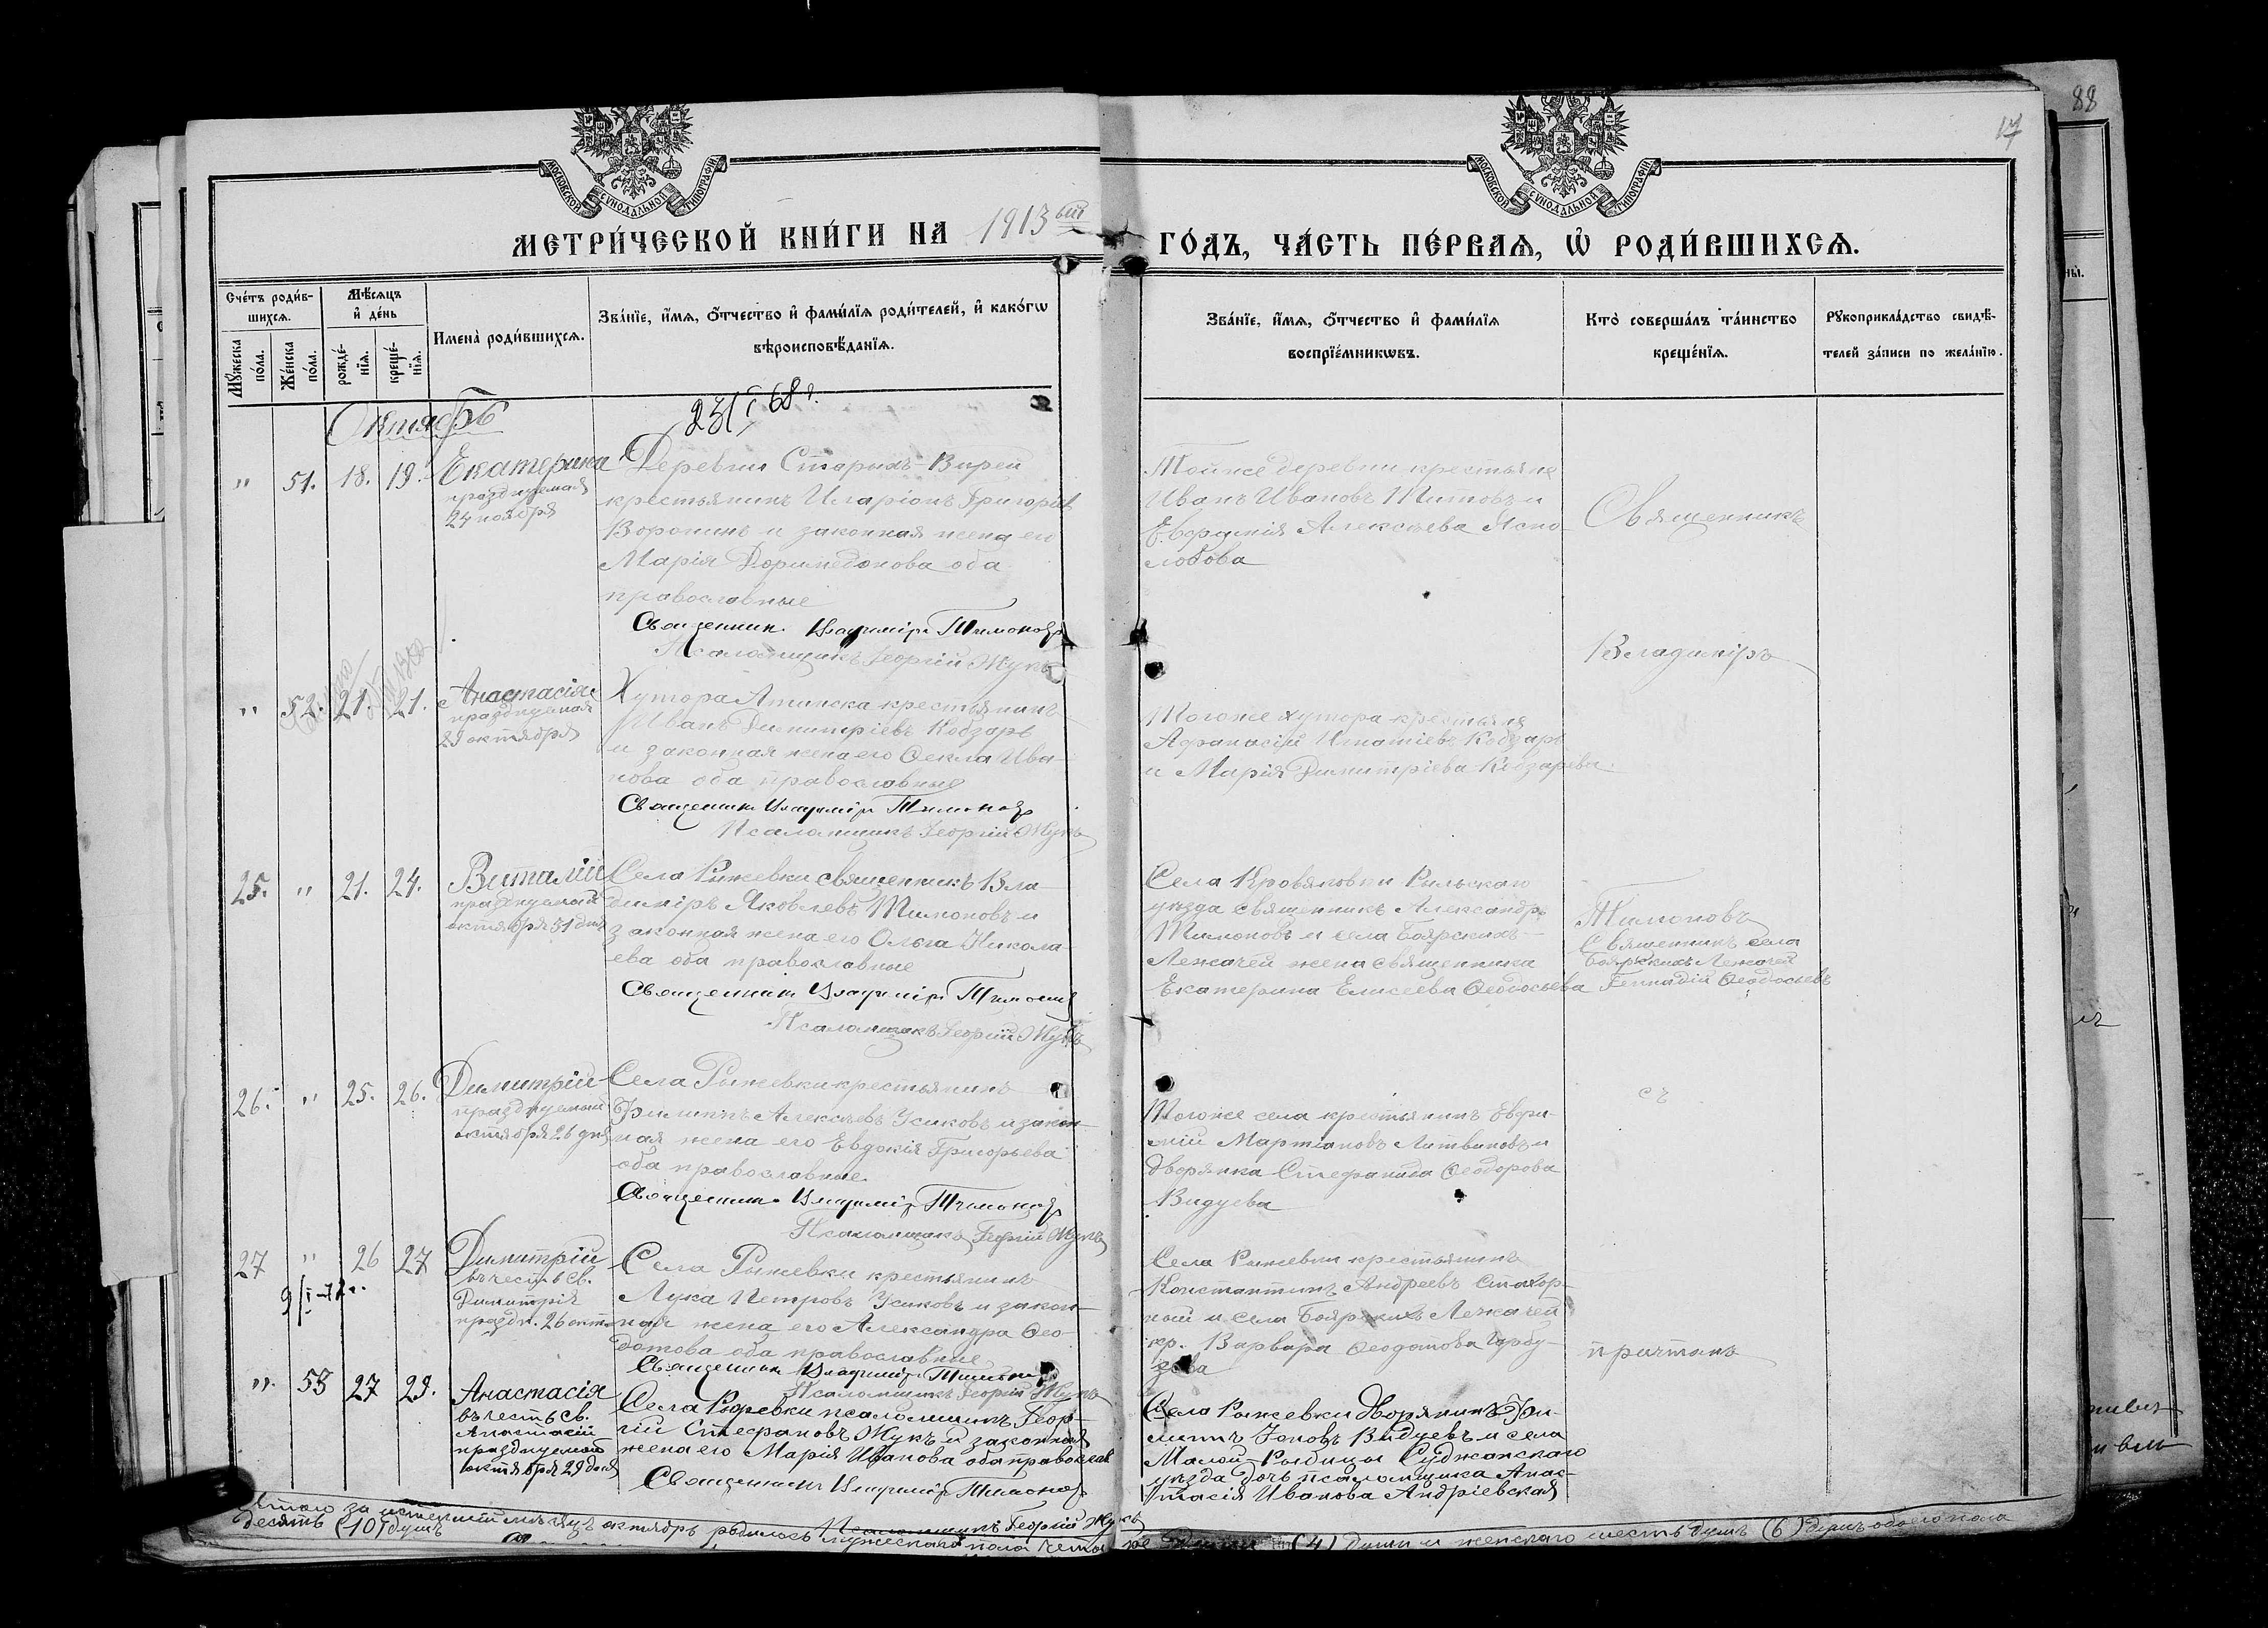 88
17
МОСКОВСКОЙ СѴНОДАЛЬНОЙ ТИПОГРАФІИ
МОСКОВСКОЙ СѴНОДАЛЬНОЙ ТИПОГРАФІИ
МЕТРИ́ЧЕСКОЙ КНИ́ГИ НА 1913ый ГО́ДЪ, ЧА́СТЬ ПЕ́РВАѦ, Ѡ҆ РОДИ́ВШИХСѦ.
Сче́тъ роди́в-
шихсѧ.
Мѣ́сѧцъ
и҆ де́нь
Мꙋ́жеска по́ла.
Же́нска по́ла.
рожде́-
нїѧ.
креще́-
нїѧ.
Имена̀ роди́вшихсѧ.
Зва́нїе, и҆́мѧ, ѻ҆́тчество и҆ фами́лїѧ роди́телей, и҆ како́гѡ
вѣроисповѣ́данїѧ.
Зва́нїе, и҆́мѧ, ѻ҆́тчество и҆ фами́лїѧ
воспрїе́мникѡвъ.
Кто̀ соверша́лъ та́инство
креще́нїѧ.
Рꙋкоприкла́дство свидѣ́-
телей за́писи по жела́нїю.
Октябрь
" 51. 18. 19. Екатерина
празднуемая
24 ноября
Деревни Старыхъ-Вирей
крестьянинъ Иларіонъ Григорьев
Воронинъ и законная жена его
Марія Доримедонова оба
православные
Священникъ Владиміръ Тимоновъ
Псаломщикъ Георгій Жукъ
Тойже деревни крестьяне
Иванъ Ивановъ Титовъ и
Алексѣева Ясно-
Священникъ
Владиміръ
" 52. 21. 21. Анастасія
празднуемая
29 октября
Хутора Атинска крестьянинъ
Иванъ Димитріевъ Кобзарь
и законная жена его Ѳекла Ива-
нова оба православные
Священникъ Владиміръ Тимоновъ
Псаломщикъ Георгій Жукъ
Тогоже хутора крестьяне
Афанасій Игнатіевъ Кобзарь
и Марія Димитріева Кобзарева
25. " 21. 24. Виталій
празднуемый
октября 31 дня
Села Рыжевки священникъ Вла-
диміръ Яковлевъ Тимоновъ и
законная жена его Ольга Никола-
ева оба православные
Священникъ Владиміръ Тимоновъ
Псаломщикъ Георгій Жукъ
Села Кровяновки Рыльскаго
уѣзда священникъ Александръ
Тимоновъ и села Боярскихъ-
Лежачей жена священника
Екатерина Елисеева Ѳеодосьева
Тимоновъ
Священникъ села
Боярскихъ Лежачей
Геннадій Ѳеодосьевъ
26. " 25. 26. Димитрій
празднуемый
октября 26 дня
Села Рыжевки крестьянинъ
Филиппъ Алексѣевъ Усиковъ и закон-
ная жена его Евдокія Григорьева
оба православные
Священникъ Владиміръ Тимоновъ
Псаломщикъ Георгій Жукъ
съ
Тогоже села крестьянинъ Евфи-
мій Мартіановъ Литвиновъ и
дворянка Стефанида Ѳеодорова
Видуева
27 " 26 27 Димитрій
въ честь св.
Димитрія
праздн. 26 окт.
Села Рыжевки крестьянинъ
Лука Петровъ Усиковъ и закон-
ная жена его Александра Ѳео-
дотова оба православные
Священникъ Владиміръ Тимоновъ
Псаломщикъ Георгій Жукъ
Села Рыжевки крестьянинъ
Константинъ Андреевъ
и села Боярскихъ Лежачей
кр. Варвара Ѳеодотова Гарбу-
зова
причтомъ
". 53 27 29. Анастасія
въ честь св.
Анастасіи
празднуемой
октября 29 дня
Села Рыжевки псаломщикъ Геор-
гій Стефановъ Жукъ и законная
жена его Марія Иванова оба православ
Священникъ Владиміръ Тимоновъ
Псаломщикъ Георгій Жукъ
Села Рыжевки дворянинъ Фи-
липпъ Іоновъ Видуевъ и села
Малой-Рыбицы Суджанскаго
уѣзда дочь псаломщика Анас-
тасія Иванова Андріевская
Итого за истекшій мѣсяцъ октябрь родилось мужескаго пола четы
ре (4) души и женскаго шесть душъ (6) душъ обоего пола
десять (10) душъ